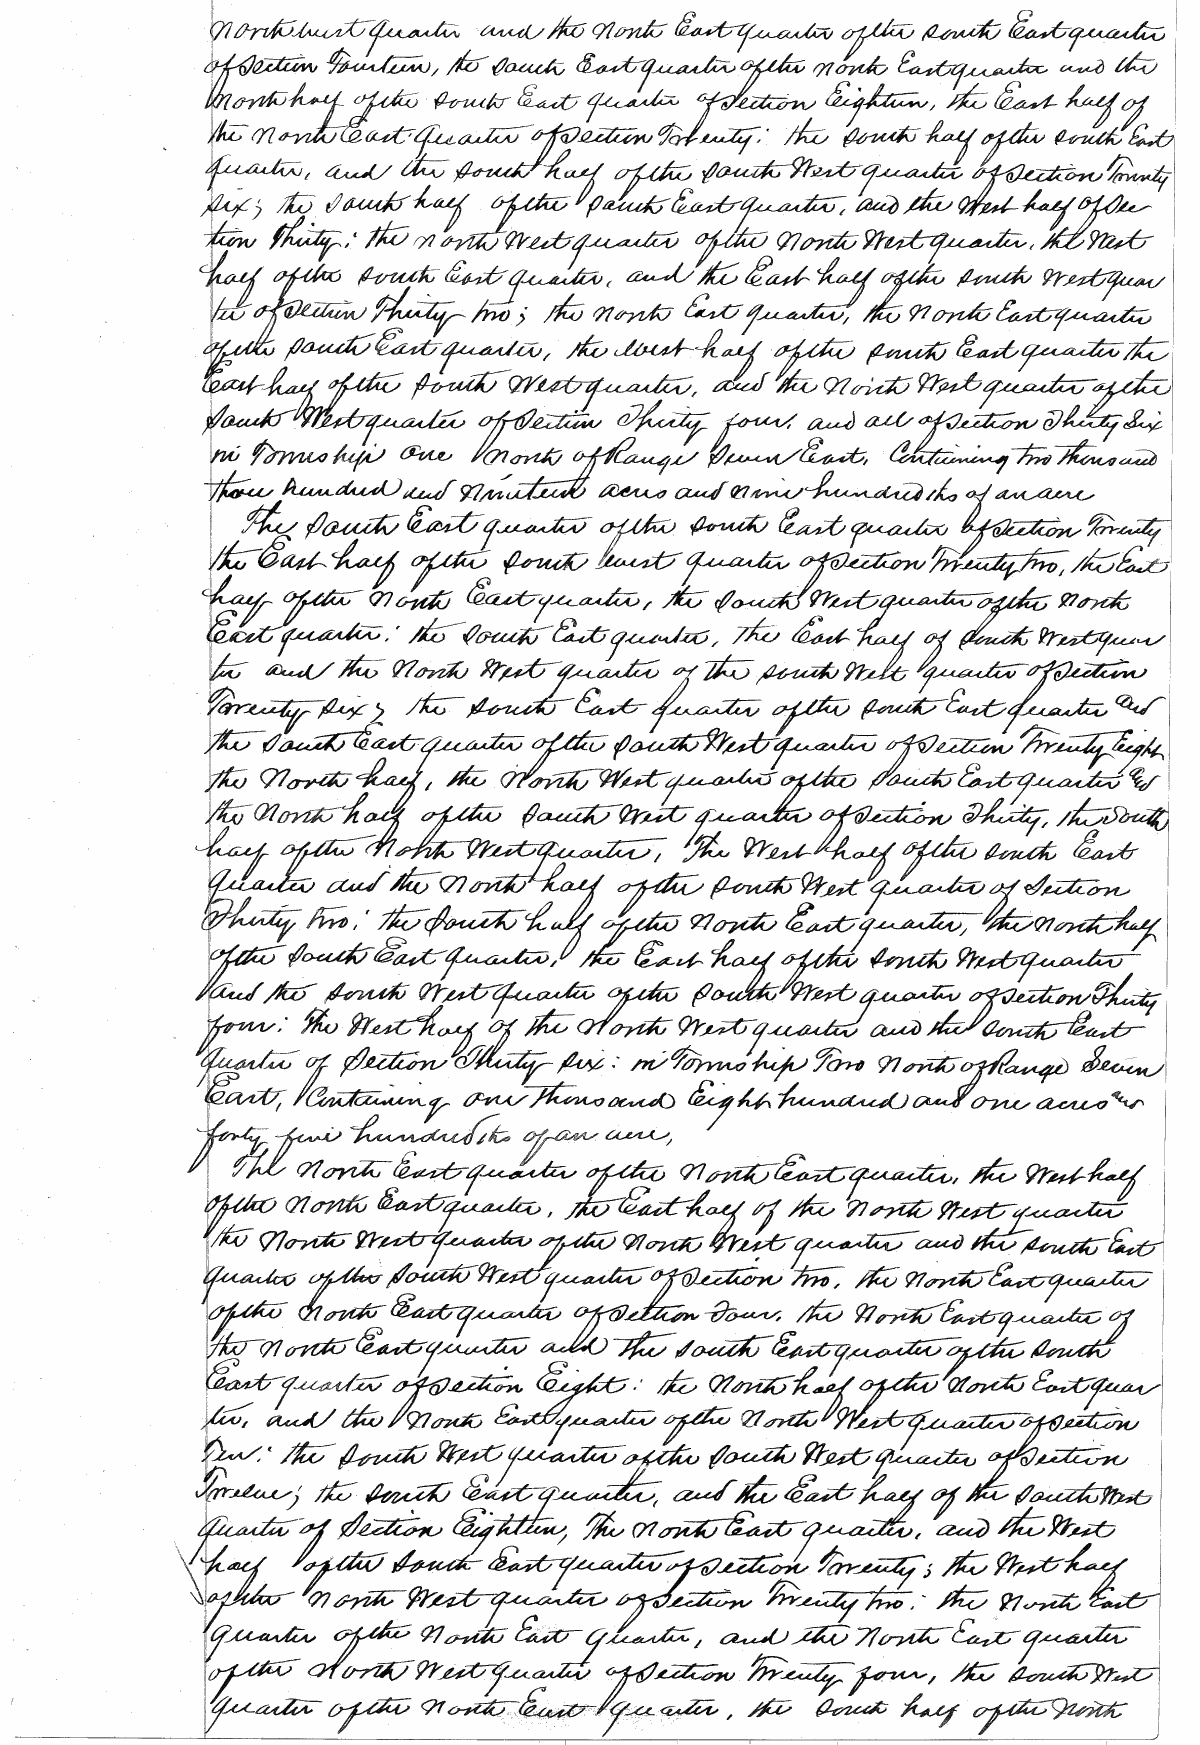 North west quarter and the North East quarter of the South East quarter
of Section Fourteen, the South East quarter of the North East quarter and the
North half of the South East quarter of Section Eighteen, the East half of
the North East Quarter of Section Twenty: the South half of the South East
quarter, and the South half of the South West quarter of Section Twenty
Six; the South half of the South East quarter, and the West half of Sec
tion Thirty: the North West quarter of the North West quarter, the West
half of the South East quarter, and the East half of the South West quar
ter of Section Thirty two; the North East quarter, the North East quarter
of the South East quarter, the West half of the South East quarter the
East half of the South West quarter, and the North West quarter of the
South West quarter of Section Thirty four, and all of Section Thirty Six
in Township One North of Range Seven East, Containing two thousand
three hundred and Nineteen acres and nine hundredths of an acre
The South East quarter of the South East quarter of Section Twenty
the East half of the South west quarter of Section Twenty two, the East
half of the North East quarter, the South West quarter of the North
East quarter: the South East quarter, the East half of South West quar
ter and the North West quarter of the South West quarter of Section
Twenty Six; the South East quarter of the South East quarter and
the South East quarter of the South West quarter of Section Twenty Eight
the North half, the North West quarter of the South East quarter and
the North half of the South West quarter of Section Thirty, the South
half of the North West quarter, The West half of the South East
quarter and the North half of the South West quarter of Section
Thirty two: the South half of the North East quarter, the North half
of the South East quarter, the East half of the South West quarter
and the South West quarter of the South West quarter of Section Thirty
four: the West half of the North West quarter and the South East
quarter of Section Thirty Six: in Township Two North of Range Seven
East, Containing one thousand Eight hundred and one acres and
forty five hundredths of an acre,
The North East quarter of the North East quarter, the West half
of the North East quarter, the East half of the North West quarter
the North West quarter of the North West quarter and the South East
quarter of the South West quarter of Section two, the North East quarter
of the North East quarter of Section Four, the North East quarter of
the North East quarter and the South East quarter of the South
East quarter of Section Eight: the North half of the North East quar
ter, and the North East quarter of the North West quarter of Section
Ten: the South West quarter of the South West quarter of Section
Twelve; the South East quarter, and the East half of the South West
quarter of Section Eighteen, The North East quarter, and the West
half of the South East quarter of Section Twenty; the West half
of the North West quarter of Section Twenty two: the North East
quarter of the North East Quarter, and the North East quarter
of the North West quarter of Section Twenty four, the South West
quarter of the North East quarter, the South half of the North